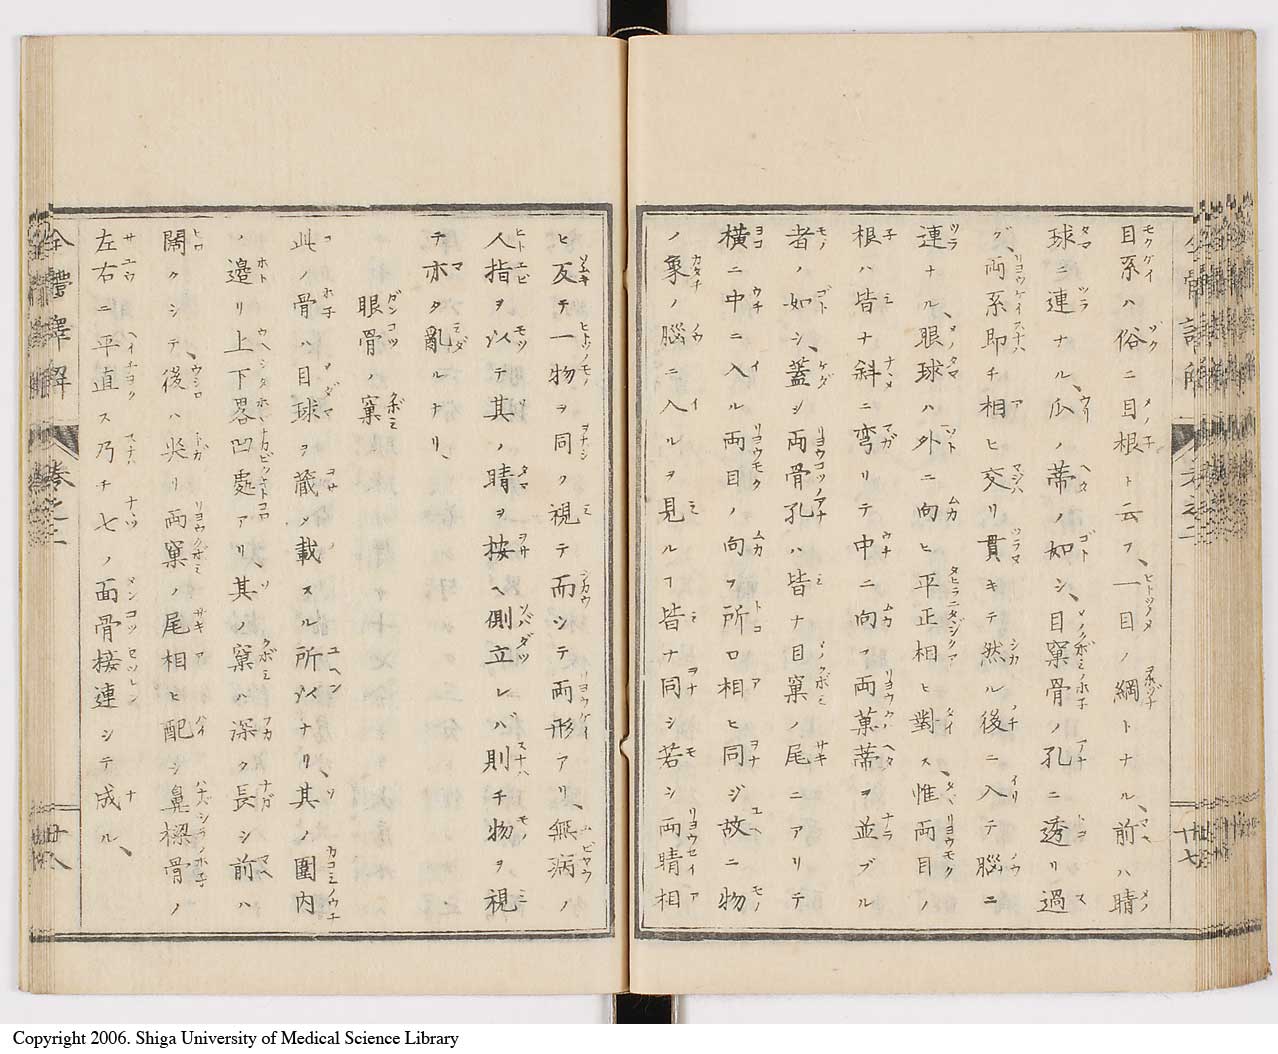 目系ハ俗ニ目根ト云フ、一目ノ綱トナル、前ハ睛
球ニ連ナル、瓜ノ蒂ノ如シ、目窠骨ノ孔ニ透リ過
グ、両系即チ相ヒ交リ貫キテ然ル後ニ入テ腦ニ
連ナル、眼球ハ外ニ向ヒ平正相ヒ對ス、惟両目ノ
根ハ皆ナ斜ニ弯リテ中ニ向フ両菓蒂ヲ並ブル
者ノ如シ、蓋シ両骨孔ハ皆ナ目窠ノ尾ニアリテ
横ニ中ニ入ル両目ノ向フ所ロ相ヒ同ジ故ニ物
ノ象ノ腦ニ入ルヲ見ルヿ皆ナ同シ若シ両睛相
ヒ反チ一物ヲ同ク視テ而シテ両形アリ、無病ノ
人指ヲ以テ其ノ睛ヲ按ヘ側立レバ則チ物ヲ視
テ亦タ亂ルナリ、
眼骨ノ窠
此ノ骨ハ目球ヲ藏メ載スル所以ナリ、其ノ圍内
ノ邊リ上下畧凹處アリ、其ノ窠ハ深ク長シ前ハ
闊クシテ、後ハ尖リ両窠ノ尾相ヒ配シ鼻樑骨ノ
左右ニ平直ス乃チ七ノ面骨接連シテ成ル、
全體譯解
巻之二
廿八
Copyright 2006. Shiga University of Medical Science Library